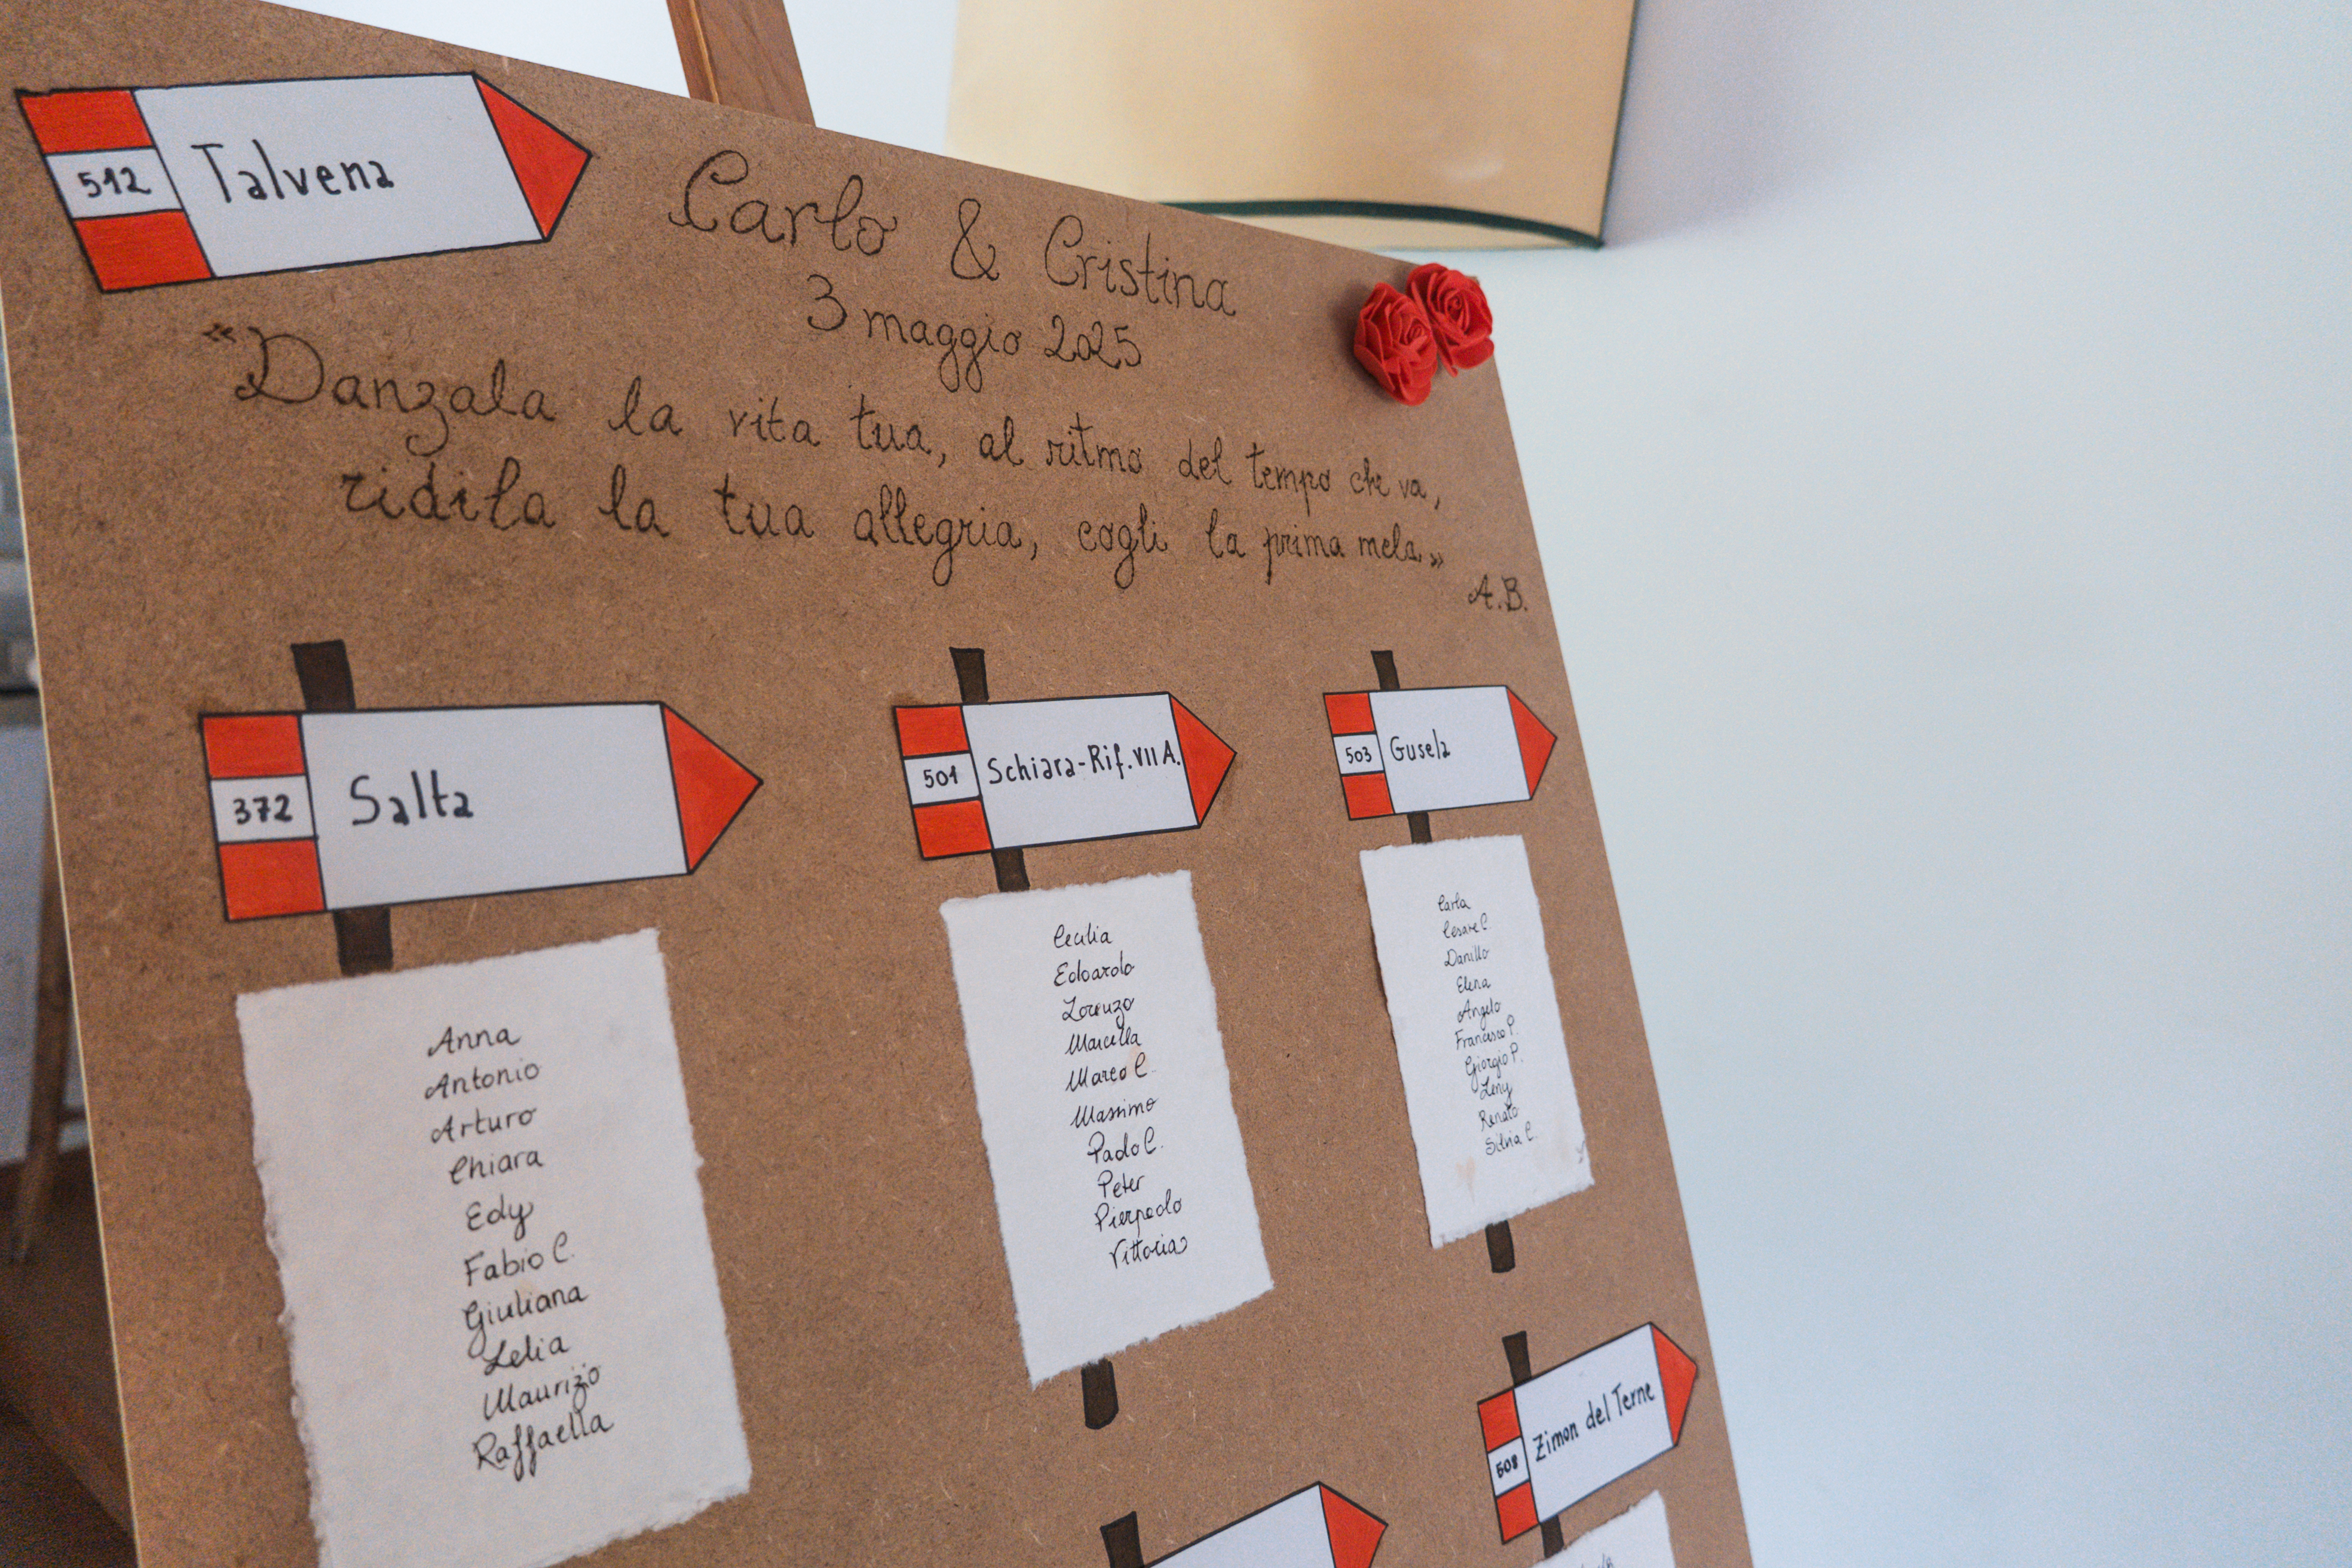 512 Talvena
Carlo & Cristina
3 maggio 2025
«Danzala la vita tua, al ritmo del tempo che va,
ridila la tua allegria, cogli la prima mela.»
A.B.
372 Salta
Anna
Antonio
Arturo
Chiara
Edy
Fabio C.
Giuliana
Lelia
Maurizio
Raffaella
501 Schiara-Rif.VII A.
Cecilia
Edoardo
Lorenzo
Marcella
Marco C.
Massimo
Paolo C.
Peter
Pierpaolo
Vittoria
503 Gusela
Carla
Cesare C.
Danillo
Elena
Angelo
Francesco P.
Giorgio P.
Leny
Renato
Silvia C.
508 Zimon del Terne